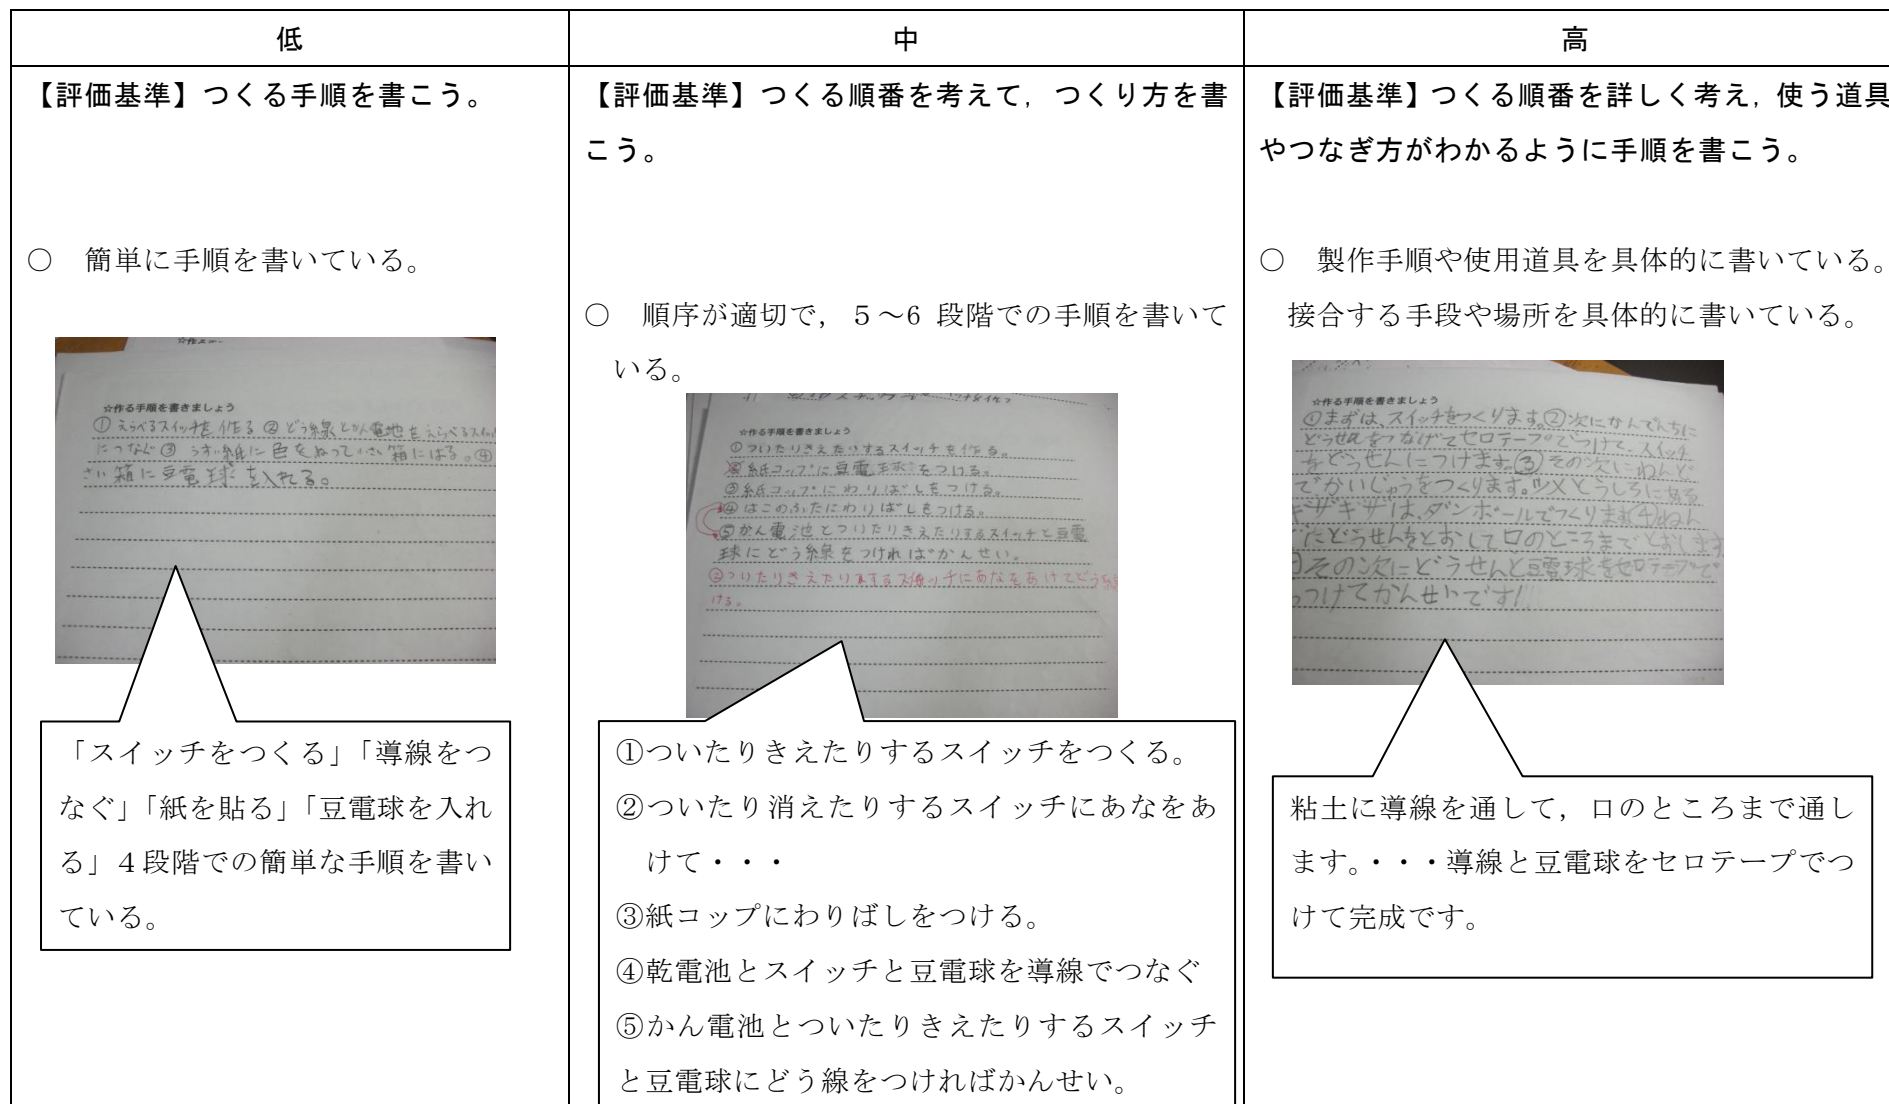 低
中
高
【評価基準】つくる手順を書こう。
○ 簡単に手順を書いている。
☆作る手順を書きましょう
①えらべるスイッチを作る ②どう線とかん電地をえらべるスイッ
につなぐ ③うすい紙に色をぬって小さい箱にはる。④
さい箱に豆電球を入れる。
「スイッチをつくる」「導線をつ
なぐ」「紙を貼る」「豆電球を入れ
る」4段階での簡単な手順を書い
ている。
【評価基準】つくる順番を考えて，つくり方を書
こう。
○ 順序が適切で，５～6 段階での手順を書いて
いる。
☆作る手順を書きましょう
①ついたりきえたりするスイッチを作る。
紙コップに豆電球をつける。
③紙コップにわりばしをつける。
④はこのふたにわりばしをつける。
⑤かん電池とついたりきえたりするスイッチと豆電
球にどう線をつければかんせい。
②ついたりきえたりするスイッチにあなをあけてどう線
ける。
①ついたりきえたりするスイッチをつくる。
②ついたり消えたりするスイッチにあなをあ
けて・・・
③紙コップにわりばしをつける。
④乾電池とスイッチと豆電球を導線でつなぐ
⑤かん電池とついたりきえたりするスイッチ
と豆電球にどう線をつければかんせい。
【評価基準】つくる順番を詳しく考え，使う道具
やつなぎ方がわかるように手順を書こう。
○ 製作手順や使用道具を具体的に書いている。
接合する手段や場所を具体的に書いている。
☆作る手順を書きましょう
①まずは、スイッチをつくります。②次にかんでんちに
どうせんをつなげてセロテープでつけて、スイッチ
をどうせんにつけます。③その次にねんど
でかいじゅうをつくります。ツメとうしろにある
ギザギザは、ダンボールでつくります④ねん
にどうせんをとおして口のところまでとおします
その次にどうせんと豆電球をセロテープで
つけてかんせいです!
粘土に導線を通して，口のところまで通し
ます。・・・導線と豆電球をセロテープでつ
けて完成です。